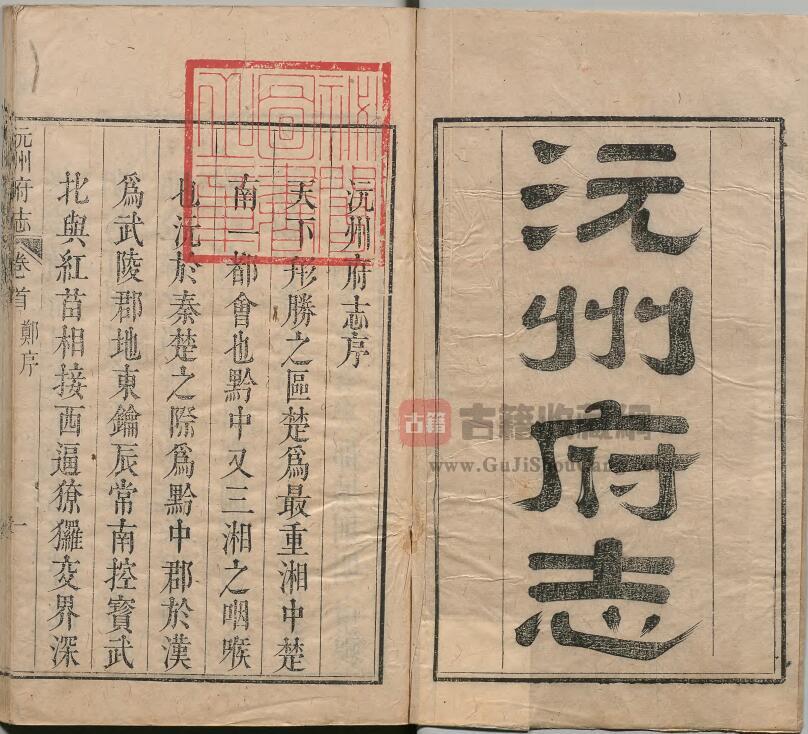 沅州府志
沅州府志序
天下形勝之區楚爲最重湘中楚
南一都會也黔中又三湘之咽喉
也沅於秦楚之際爲黔中郡於漢
爲武陵郡地東鑰辰常南控寳武
北與紅苗相接西逼獠玀交界深
沅州府志 卷首 鄭序 一
古籍 古籍收藏網